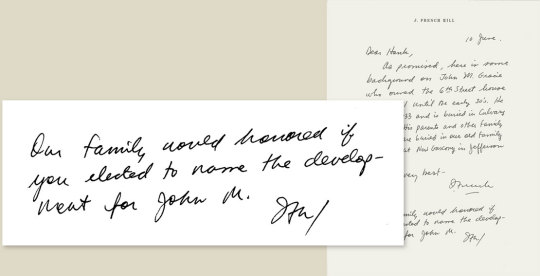 J. FRENCH HILL
10 June.
Dear Hank,
As promised, here is some
background on John M. Gracie
who owned the 6th Street house
until the early 30's. He
33 and is buried in Calvary
his parents and other family
buried in our old family
at New Gascony in Jefferson
very best-
French
family would honored if
to name the develop-
for John M.
Our family would honored if
you elected to name the develop-
ment for John M.